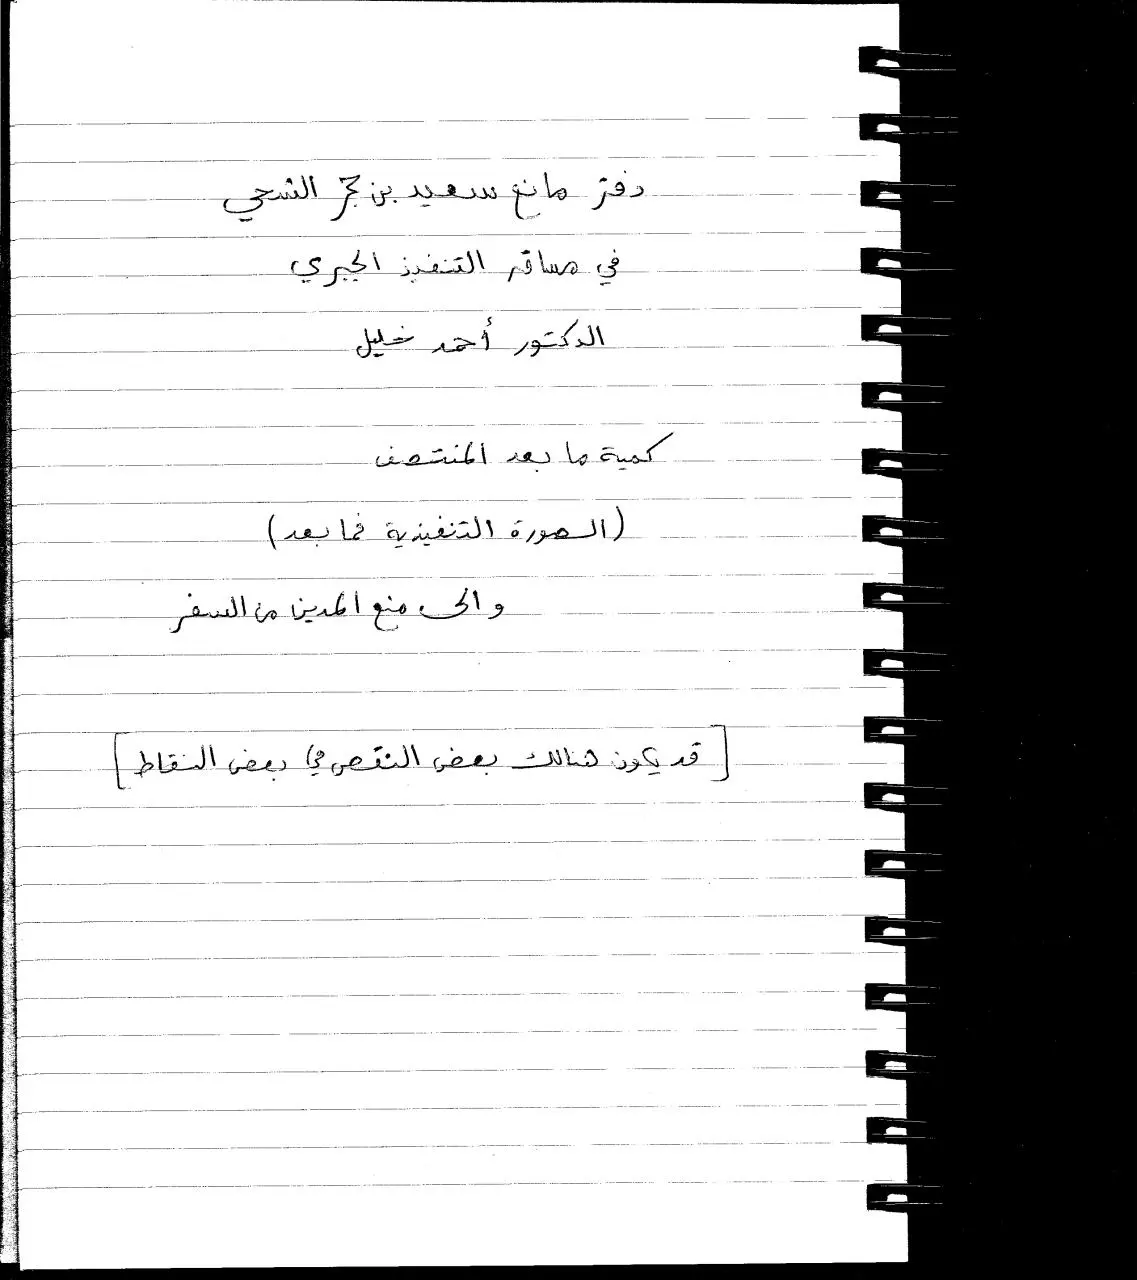 دفتر مانع سعيد بن حجر الشحي
في مساق التنفيذ الجبري
الدكتور أحمد خليل
كمية ما بعد المنتصف
(الصورة التنفيذية فما بعد)
والى منع المدين من السفر
[قد يكون هنالك بعض النقص في بعض النقاط]